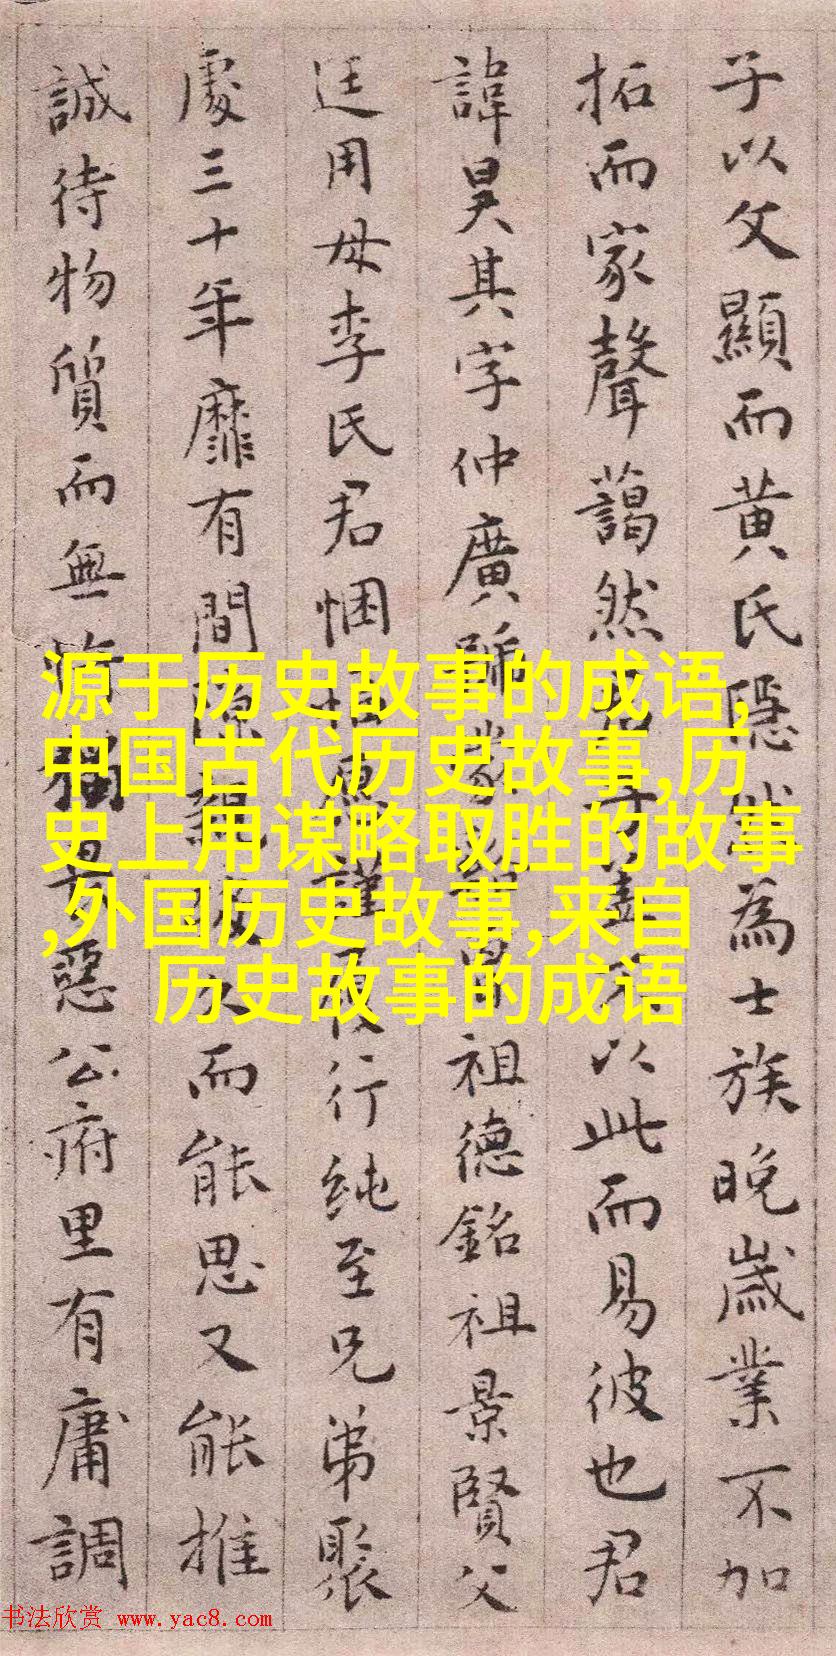 子以父顯而黄氏隱然為士族晚歲業不加
拓而家聲藹然以此而易彼也君
諱昊其字仲廣號祖德銘祖景賢父
廷用母李氏君悃行純至兄弟聚
處三十年靡有間而能思又能推
誠待物質而無惡公府里有庸調
源于历史故事的成语,
中国古代历史故事,历
史上用谋略取胜的故事
,外国历史故事,来自
历史故事的成语
书法欣赏 www.yac8.com